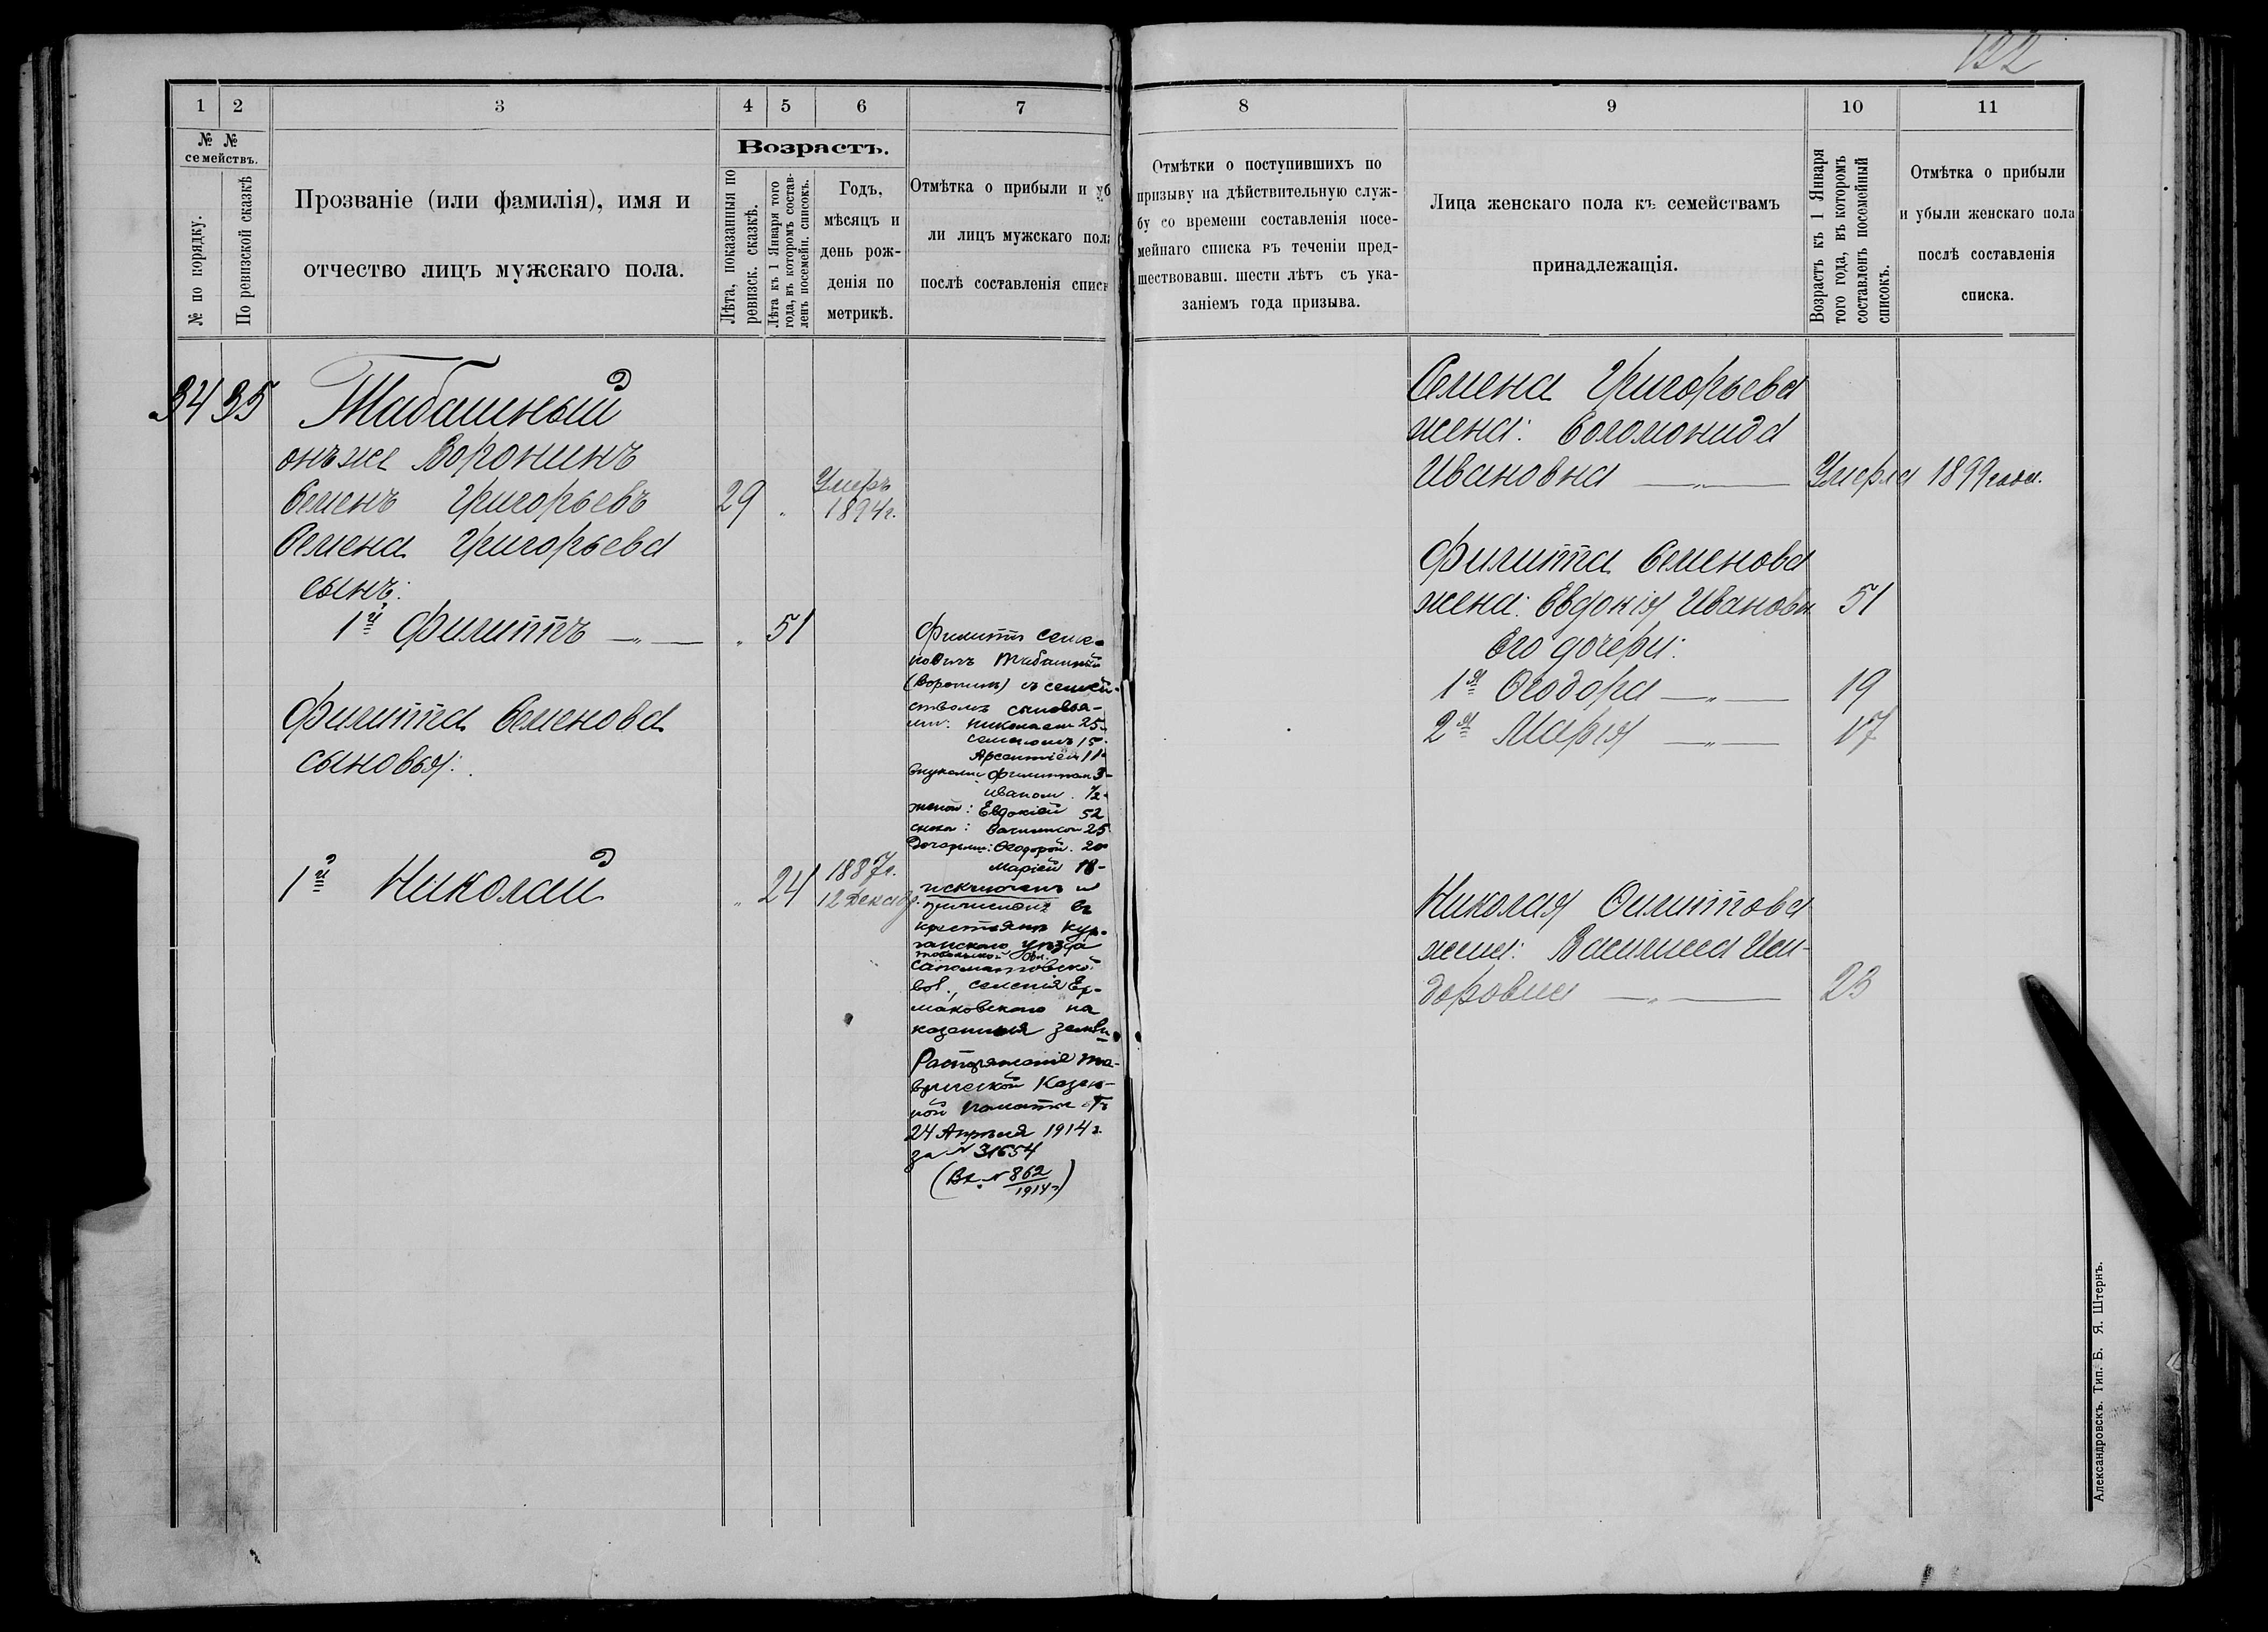 122
1
2
3
4
5
6
7
№ №
семействъ.
№ по порядку.
По ревизской сказкѣ
Прозваніе (или фамилія), имя и
отчество лицъ мужскаго пола.
Возрастъ.
Лѣта, показанныя по
ревизск. сказкѣ.
Лѣта къ 1 Января того
года, въ которомъ состав-
ленъ посемейн. списокъ.
Годъ,
мѣсяцъ и
день рож-
денія по
метрикѣ.
Отмѣтка о прибыли и уб
ли лицъ мужскаго пол
послѣ составленія списк
34 35 Табашный
онъ же Воронинъ
Семенъ Григорьевъ 29 „ Умеръ
1894 г.
Семена Григорьева
сынъ:
1й Филиппъ — „ — „ 51
Филиппа Семенова
сыновья:
1й Николай „ 24 1887 г.
12 Декабр.
Филиппъ Семе-
новичъ Табашный
(Воронинъ) съ семей-
ствомъ сыновья-
ми: Николаем 25-
Семеномъ 15-
Арсентіем 11-
внуками Филиппом 3-
Иваном 1/2-
женой: Евдокіей 52
снохой: Василисой 25
дочерьми: Ѳеодорой 20
Маріей 18-
исключенъ и
причисленъ въ
крестьяне Кур-
ганскаго уѣзда
Тобольской губ.
вол., селенія Ер-
маковскаго на
казенныя земли
Распоряженіе Та-
врической Казен-
ной палаты отъ
24 Апрѣля 1914 г.
за № 31654
(Вх. № 862
1914 г.)
8
9
10
11
Отмѣтки о поступившихъ по
призыву на дѣйствительную служ-
бу со времени составленія посе-
мейнаго списка въ теченіи пред-
шествовавш. шести лѣтъ съ ука-
заніемъ года призыва.
Лица женскаго пола къ семействамъ
принадлежащія.
Возрастъ къ 1 Января
того года, въ которомъ
составленъ посемейный
списокъ.
Отмѣтка о прибыли
и убыли женскаго пола
послѣ составленія
списка.
Семена Григорьева
жена: Соломонида
Ивановна — „ — Умерла 1899 года.
Филиппа Семенова
жена: Евдокія Ивановн 51
Его дочери:
1я Ѳеодора — „ — 19
2я Марія — „ — 17
Николая Филиппова
жена: Василиса Иси-
доровна — „ — 23
Александровскъ. Тип. Б. Я. Штернъ.